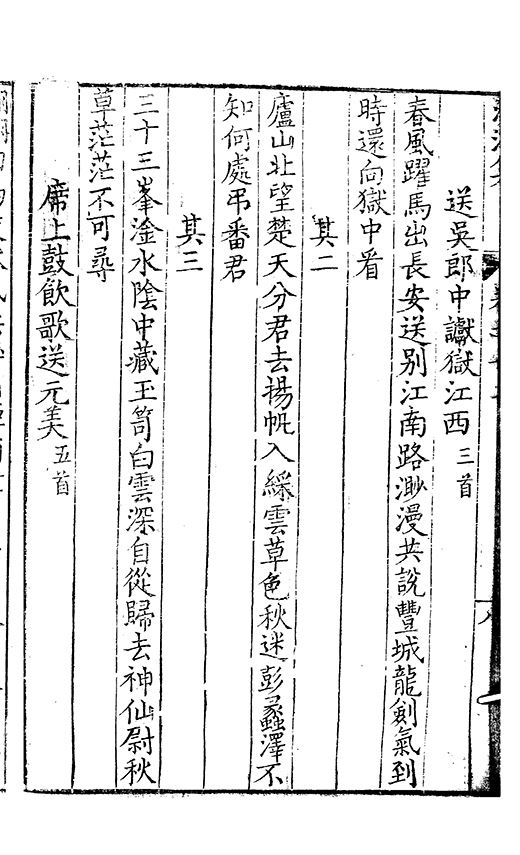 送吳郎中讞獄江西三首
春風躍馬出長安送别江南路渺漫共說豐城龍劍氣到
時還向獄中看
其二
廬山北望楚天分君去揚帆入綵雲草色秋迷彭蠡澤不
知何處弔番君
其三
三十三峯淦水陰中藏玉笥白雲深自從歸去神仙尉秋
草茫茫不可尋
席上鼓飲歌送元美五首